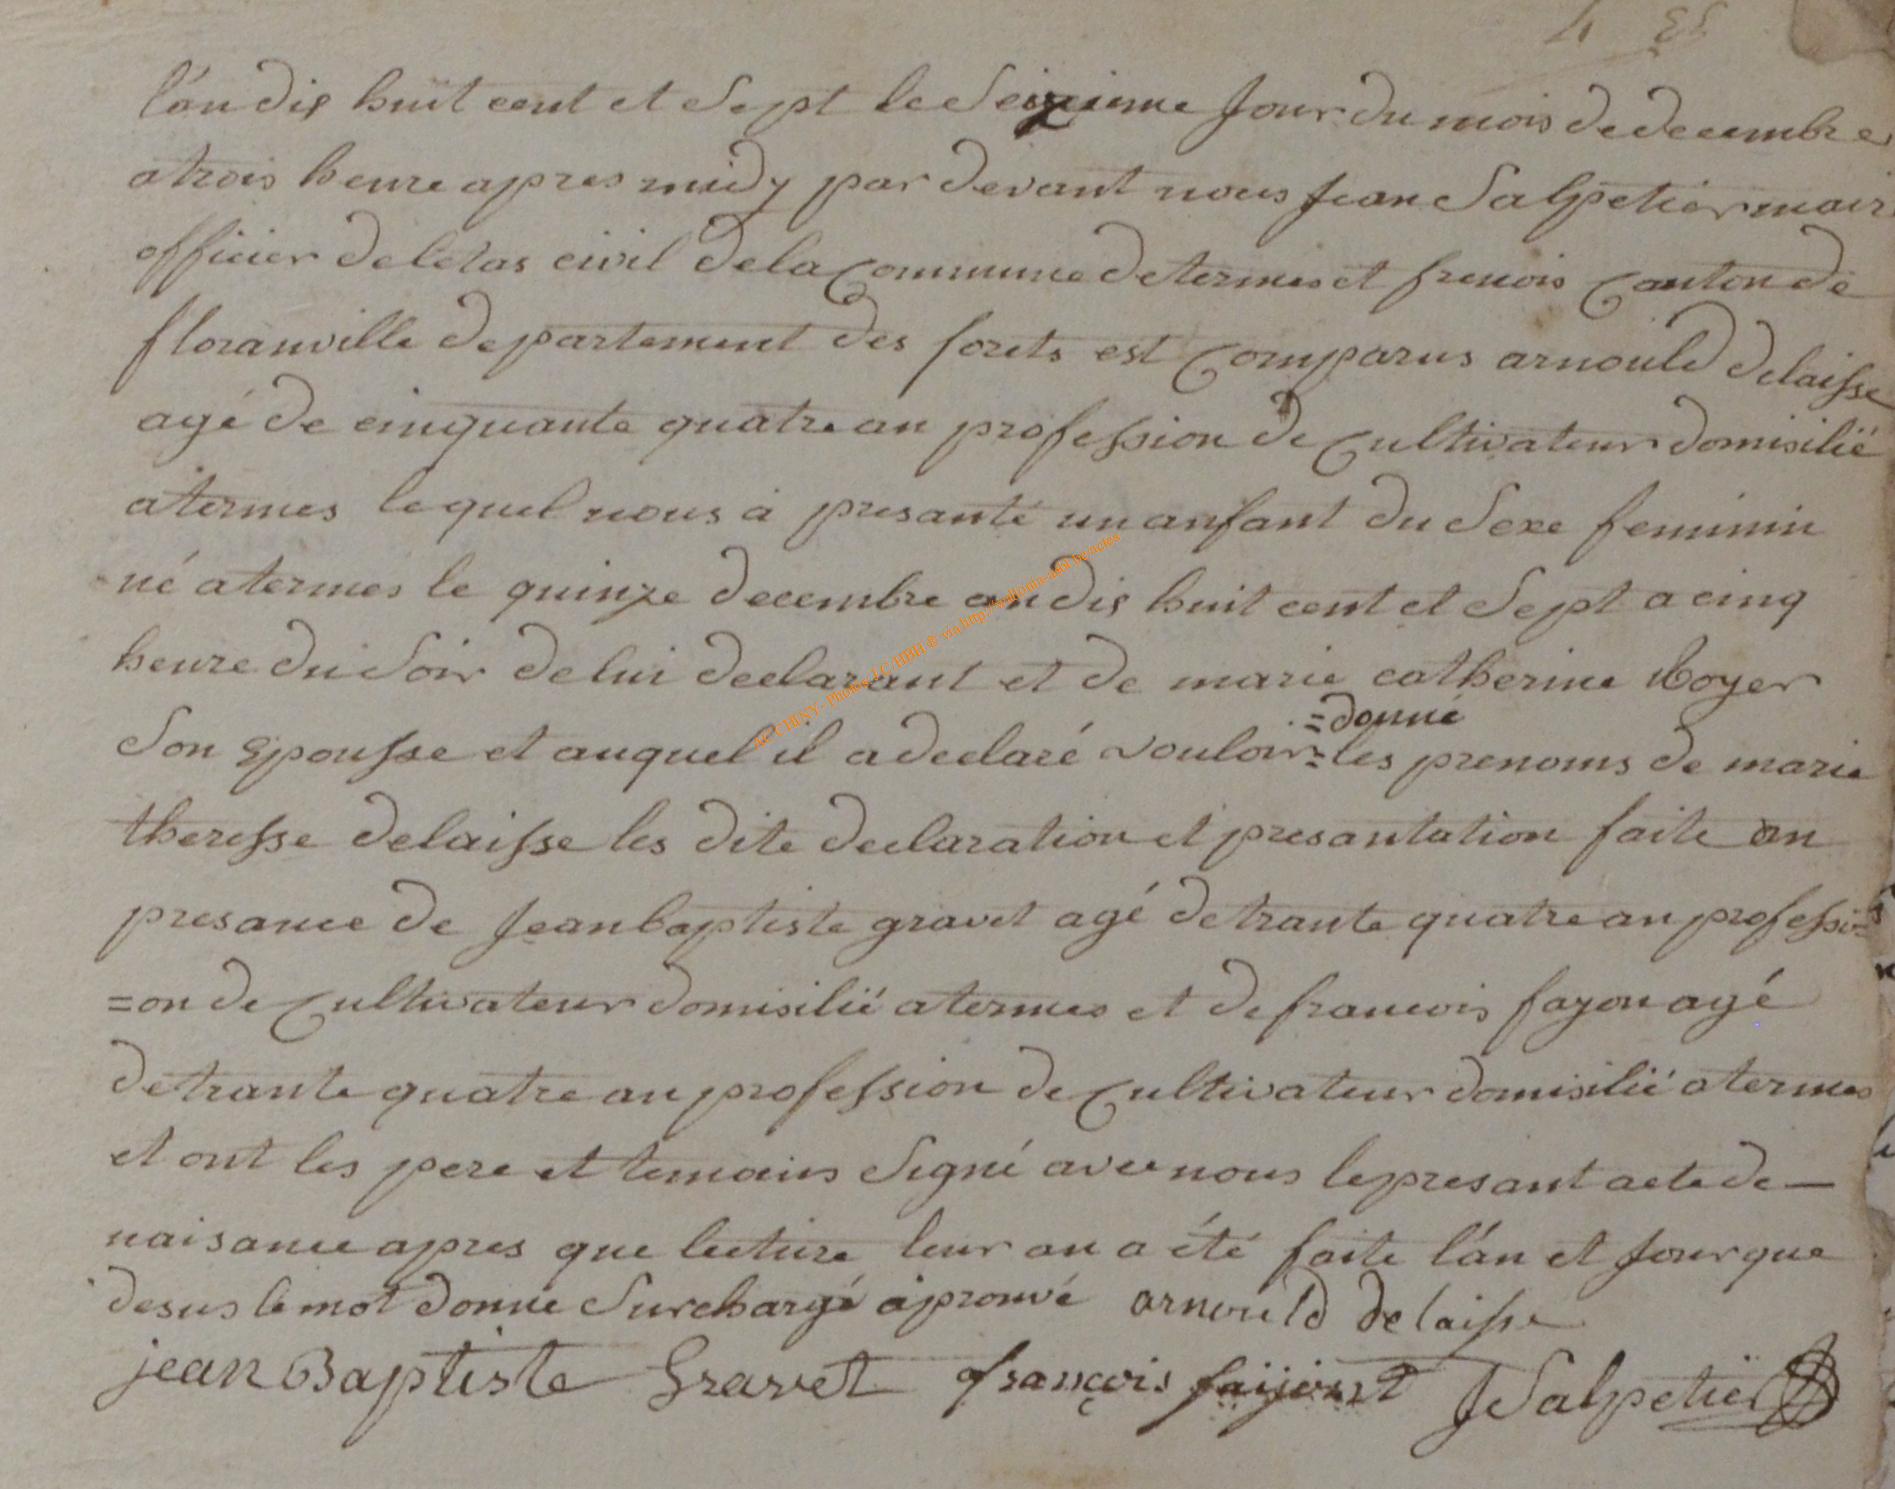 l'an dix huit cent et Sept le Seizieme Jour du mois de decembre
a trois heure apres midy par devant nous Jean Salpetier mair
officier de letas civil de la Commune de termes et frenois Canton de
floranville departement des forets est Comparus arnould delaisse
agé de cinquante quatre an profession de Cultivateur domisilié
a termes lequel nous à presanté un anfant du Sexe feminin
né a termes le quinze decembre an dix huit cent et Sept a cinq
heure du Soir de lui declarant et de marie catherine
=donné
Son Epousse et auquel il a declaré vouloir= les prenoms de marie
theresse delaisse les dite declaration et presantation faite an
presance de Jean baptiste gravet agé de trante quatre an professi=
=on de Cultivateur domisilié a termes et de francois fayon agé
de trante quatre an profession de Cultivateur domisilié a termes
et ont les pere et temoins Signé avec nous le presant acte de —
naisance apres que lecture leur an a été faite l'an et Jour que
desus le mot donné Surchargé aprouvé arnould delaisse
jean Baptiste Gravet françois faijont JSalpetier
AC CHINY - Photos LC/HBH © via http://wallonia-asbl.be/actes